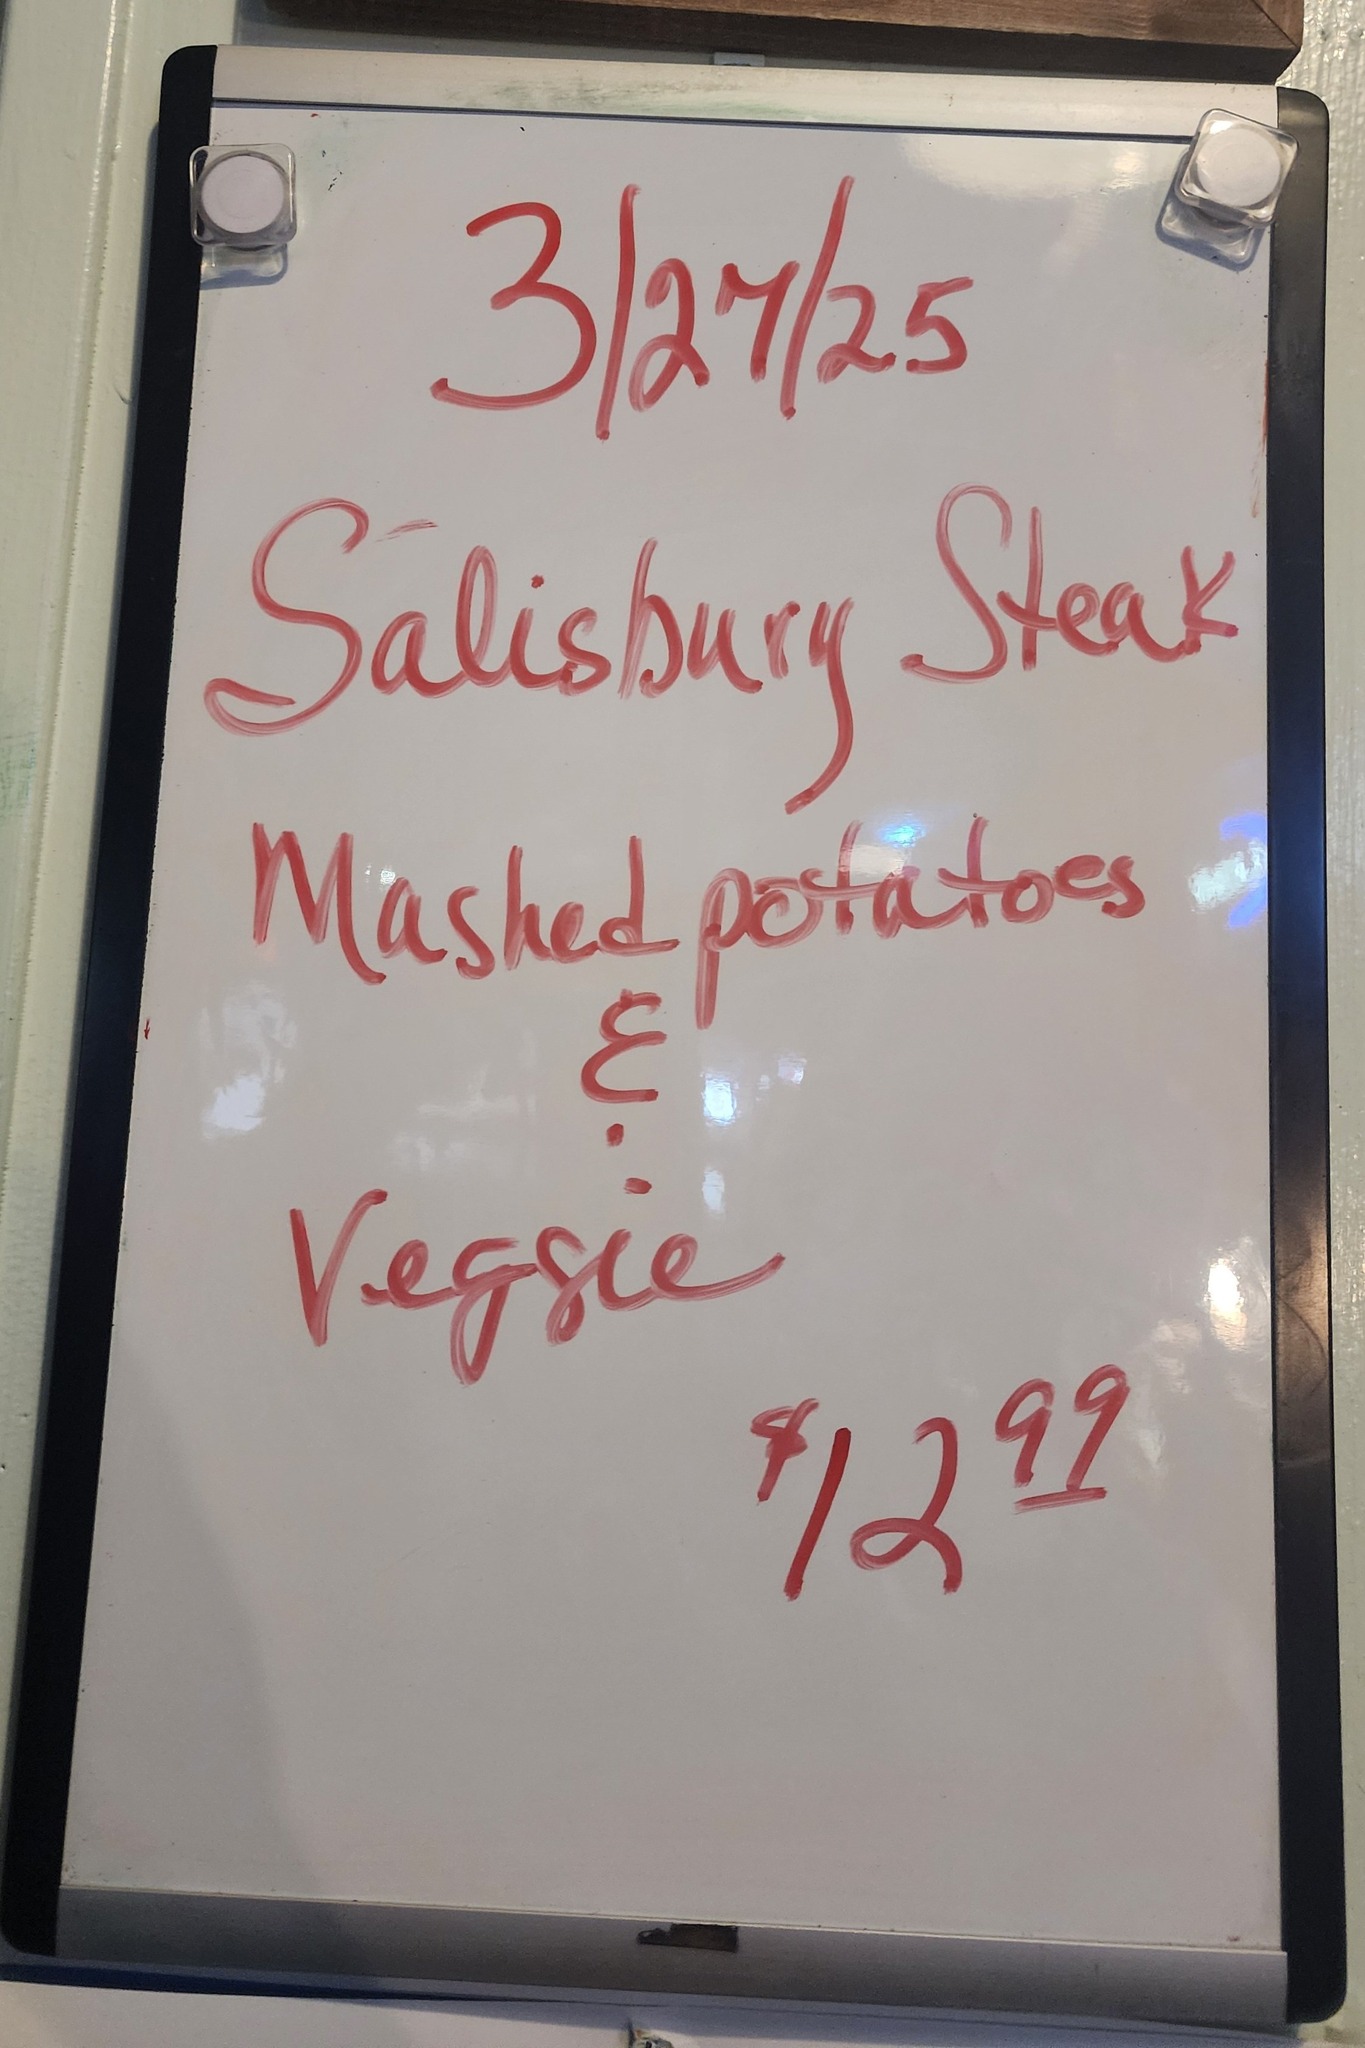 3/27/25
Salisbury Steak
Mashed potatoes
&
Veggie
$12.99